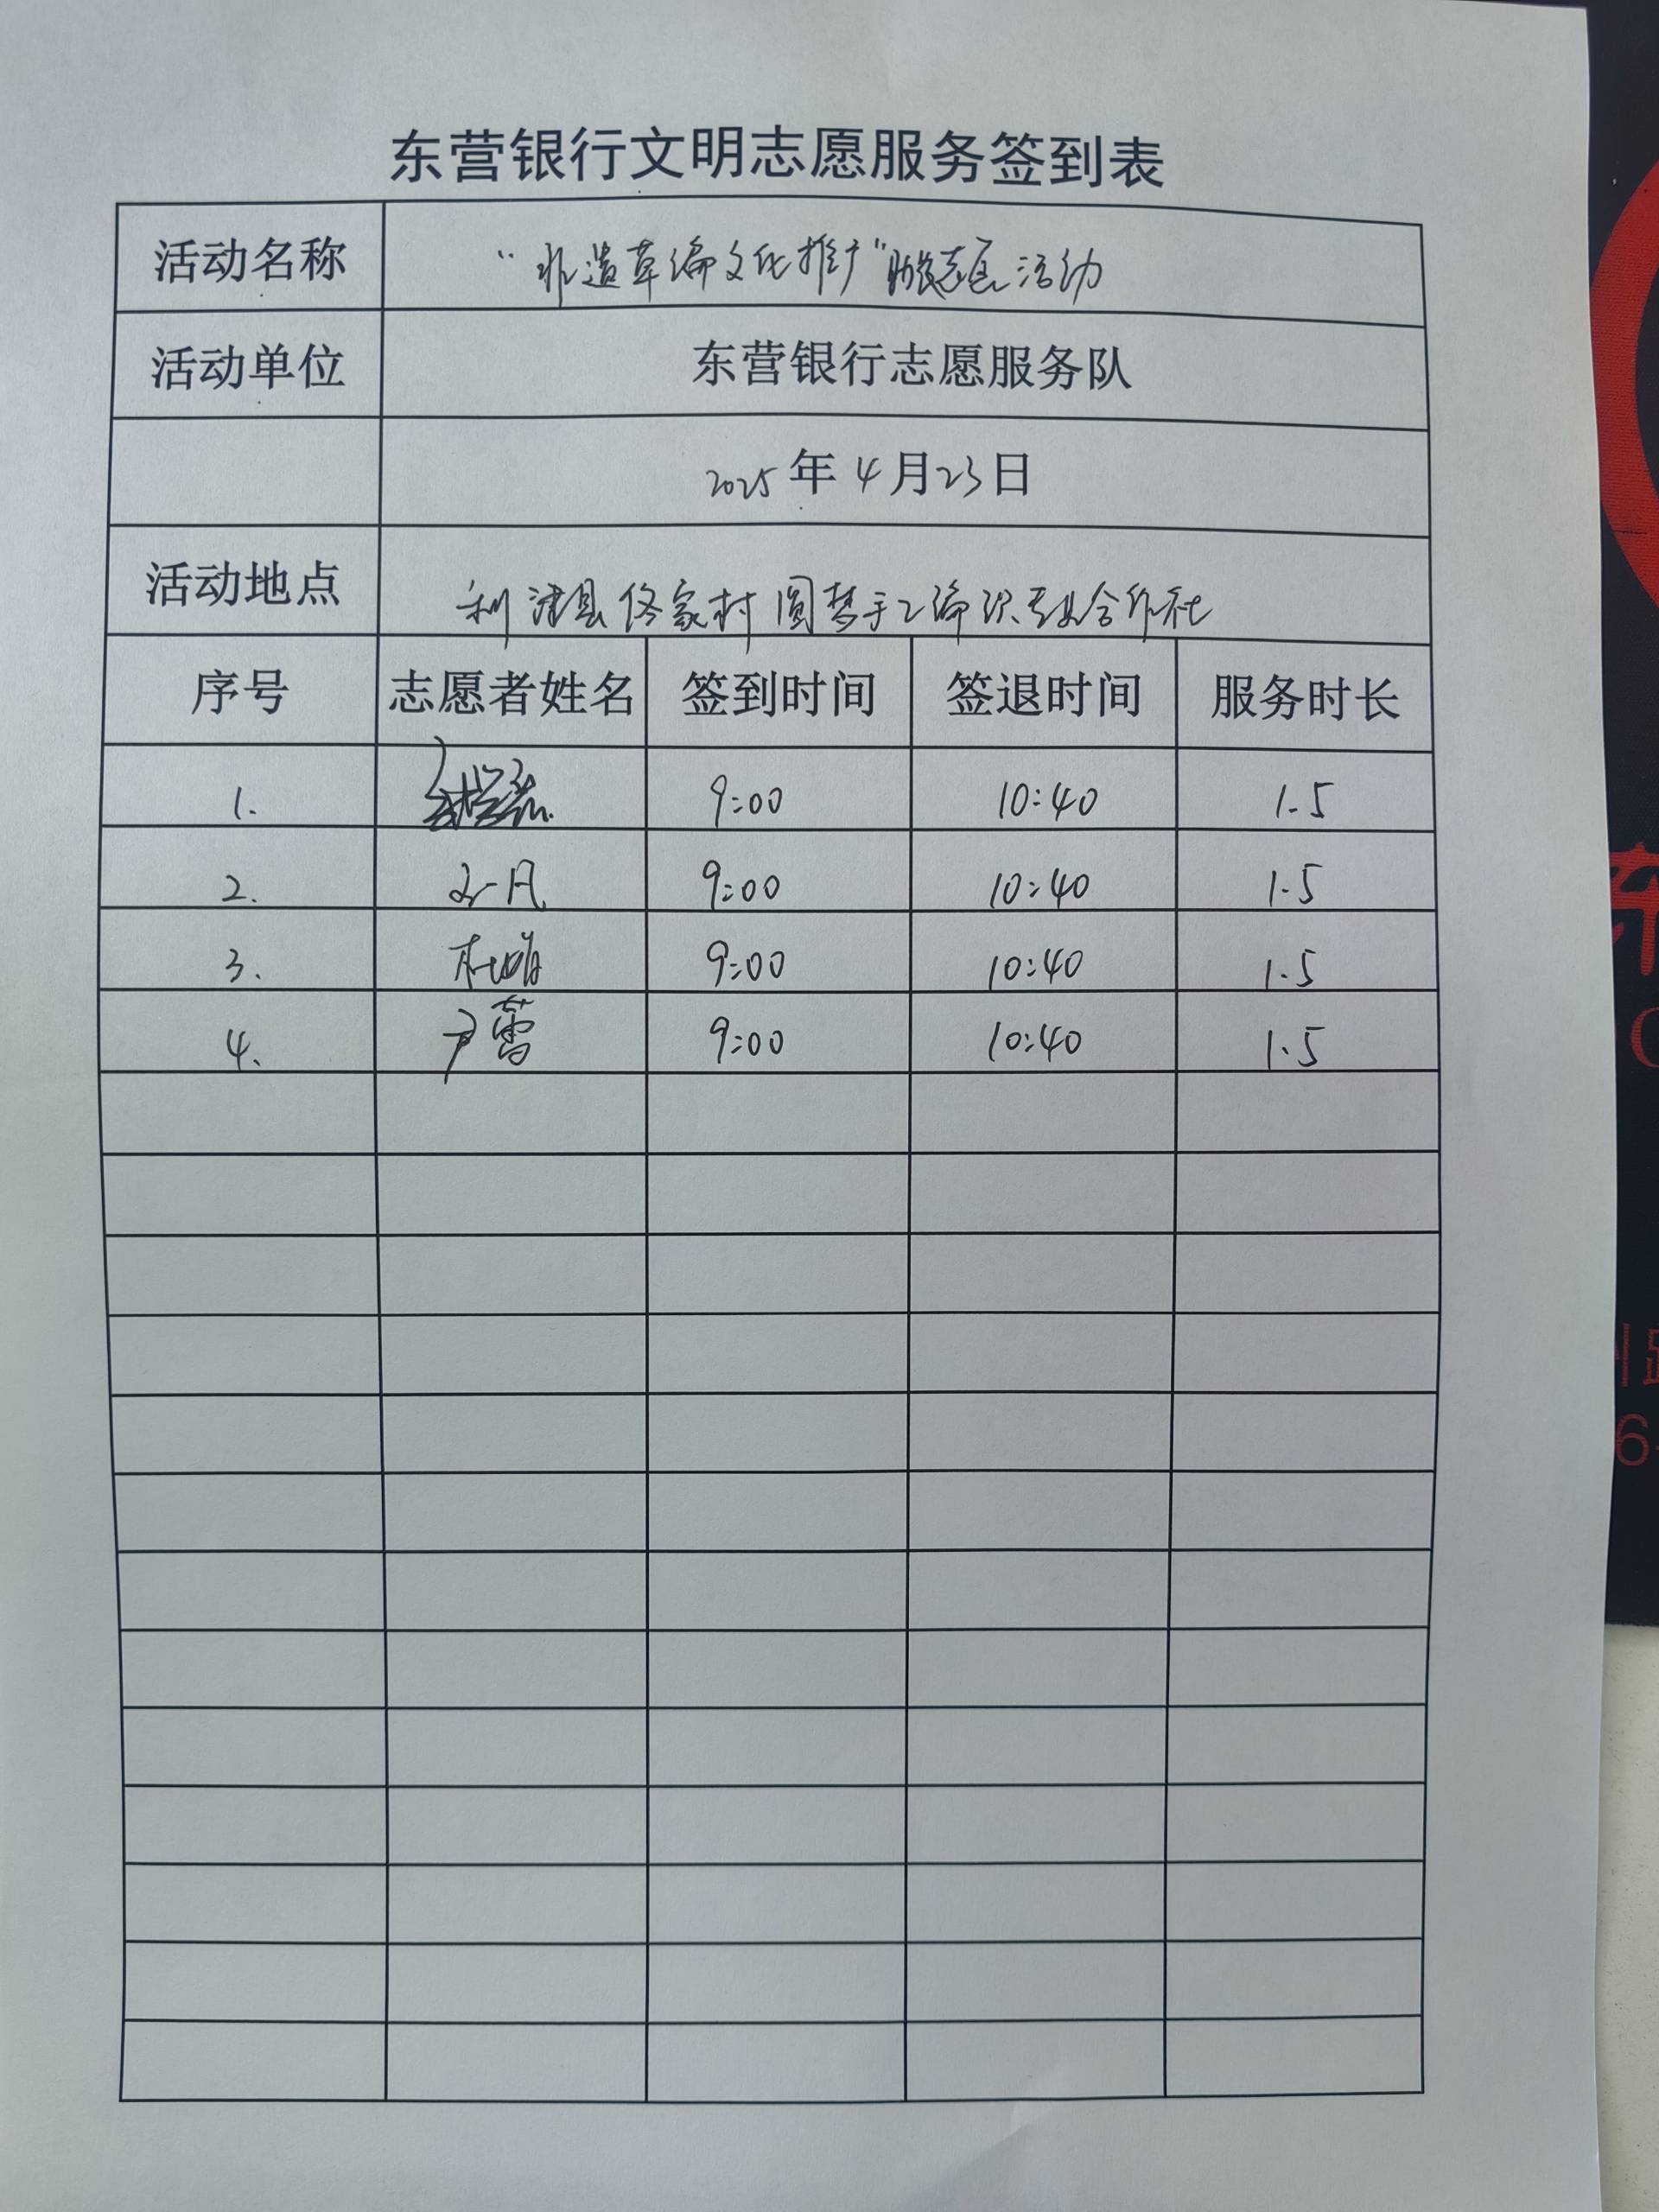 东营银行文明志愿服务签到表
活动名称 "非遗草编文化推广"助农志愿活动
活动单位 东营银行志愿服务队
2025年4月23日
活动地点 利津县佟家村圆梦手工编织专业合作社
序号 志愿者姓名 签到时间 签退时间 服务时长
1. 9:00 10:40 1.5
2. 9:00 10:40 1.5
3. 杜娟 9:00 10:40 1.5
4. 尹蕾 9:00 10:40 1.5
东